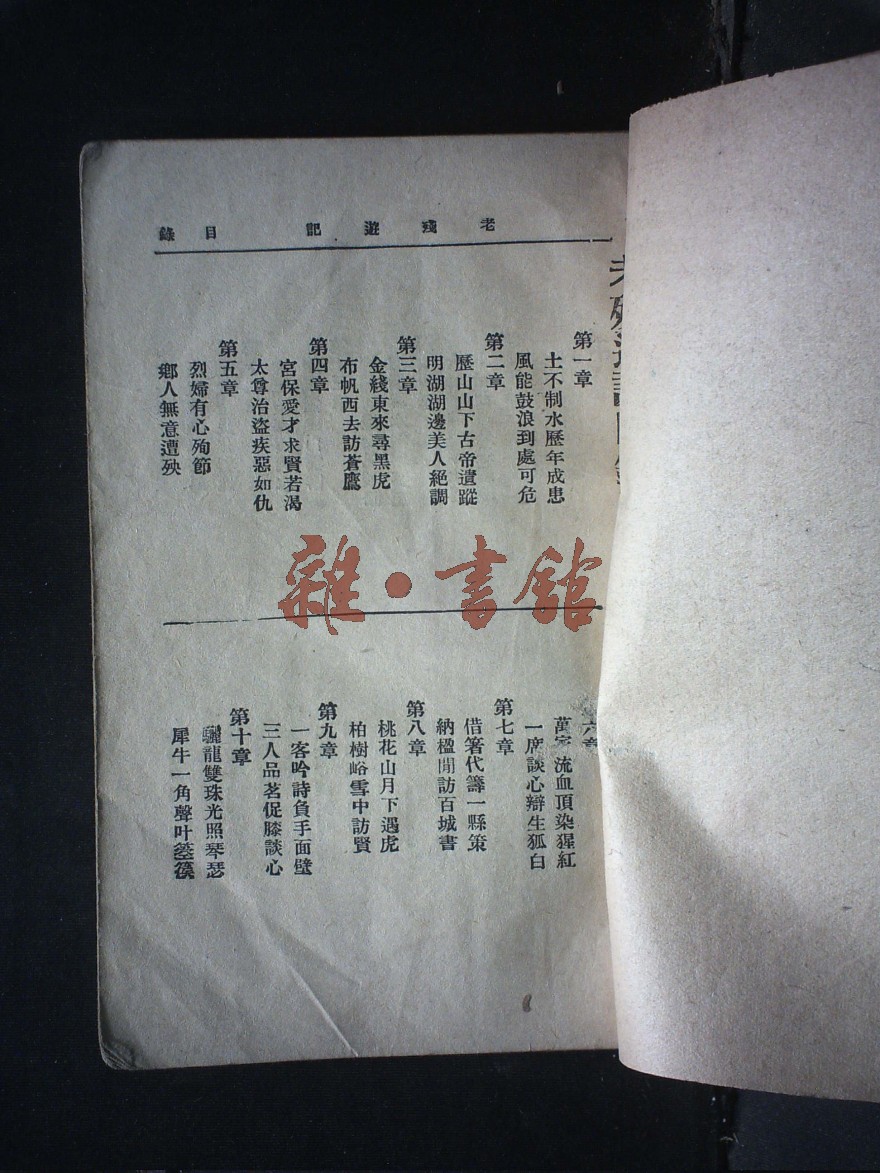 老殘遊記 目錄
第一章
土不制水歷年成患
風能鼓浪到處可危
第二章
歷山山下古帝遺蹤
明湖湖邊美人絕調
第三章
金綫東來尋黑虎
布帆西去訪蒼鷹
第四章
宮保愛才求賢若渴
太尊治盜疾惡如仇
第五章
烈婦有心殉節
鄉人無意遭殃
六章
萬家流血頂染猩紅
一席談心辯生狐白
第七章
借箸代籌一縣策
納楹閒訪百城書
第八章
桃花山月下遇虎
柏樹峪雪中訪賢
第九章
一客吟詩負手面壁
三人品茗促膝談心
第十章
驪龍雙珠光照琴瑟
犀牛一角聲叶箜篌
雜·書館